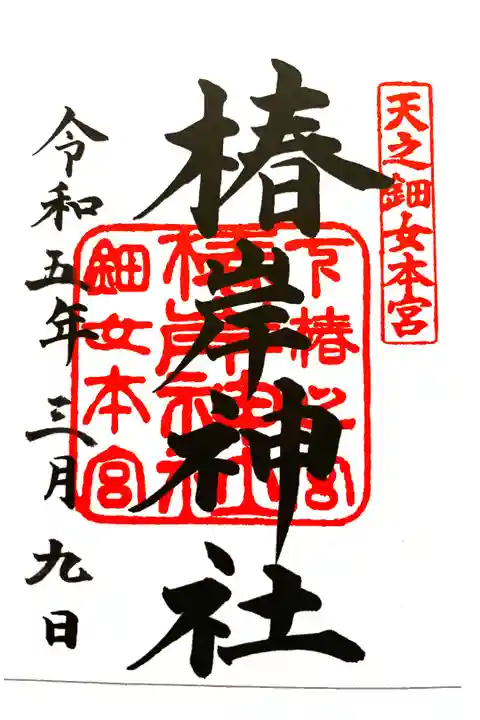 天之鈿女本宮
椿岸神社
下椿
椿岸神社
鈿女本宮
令和五年三月九日